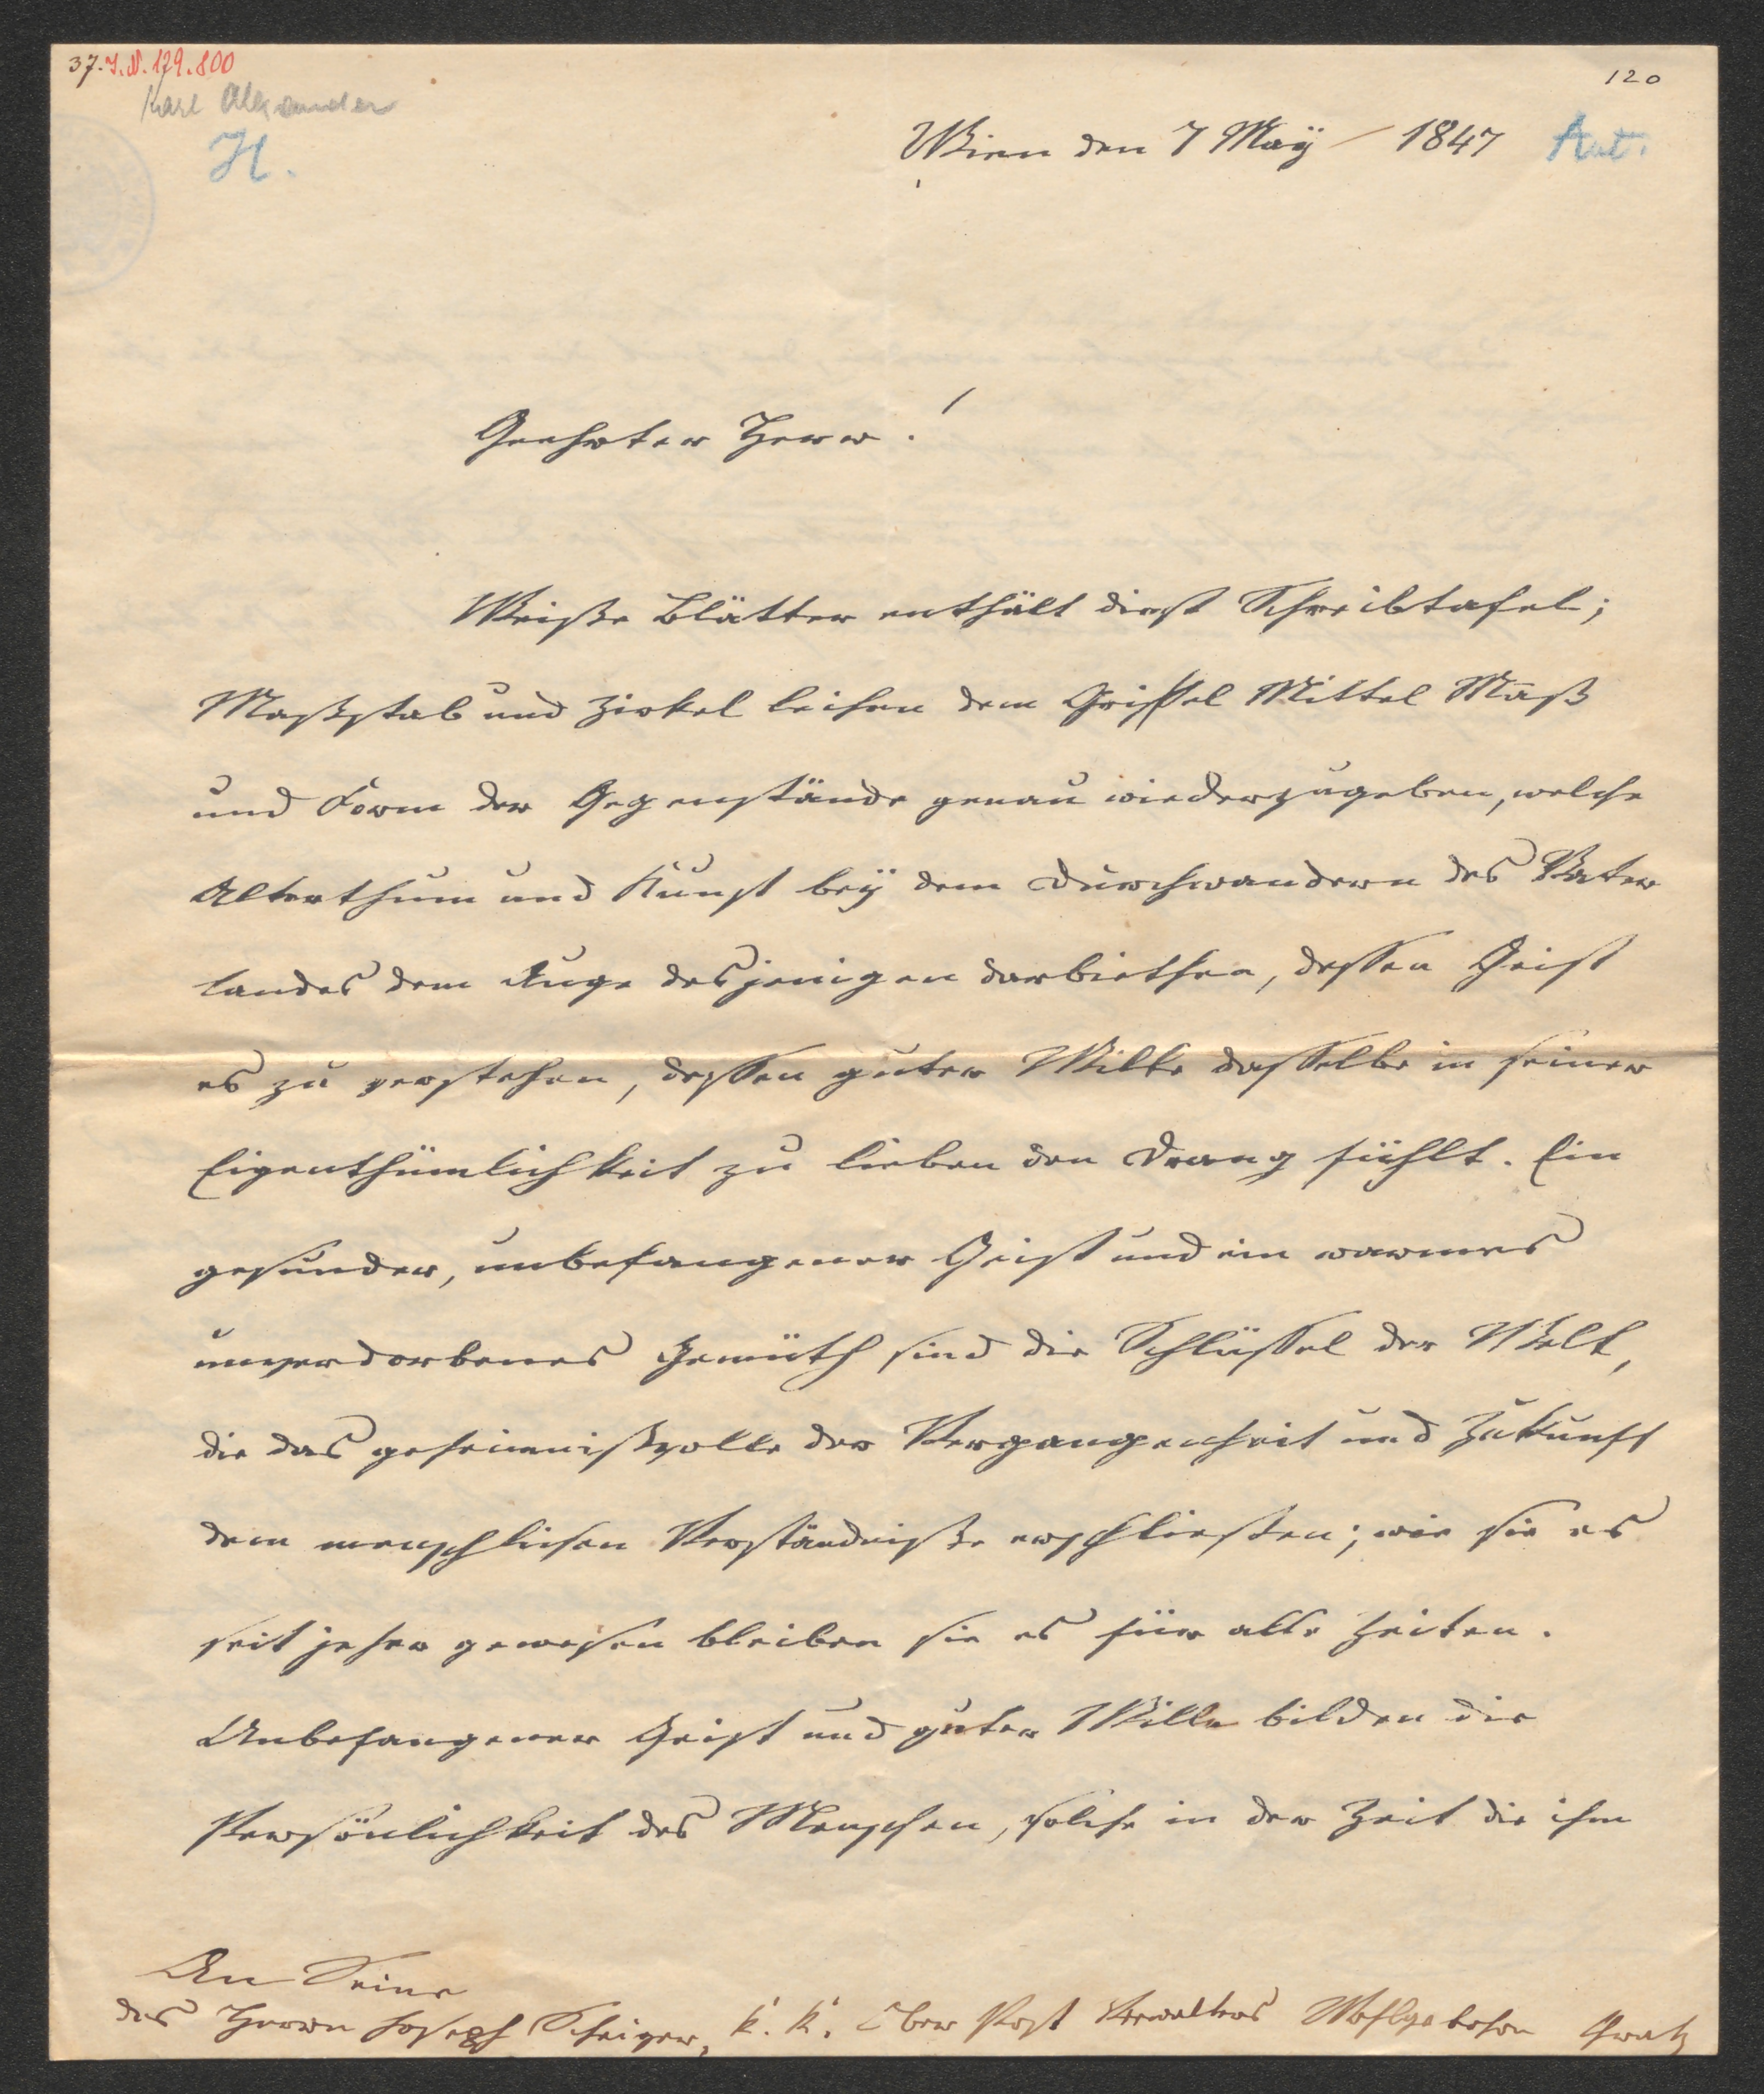 37. I.N. 129.800
120
Karl Alexander
H.
Wien den 7 Maÿ 1847
Aut.
Geehrter Herr!
Weiße Blätter enthält diese Schreibtafel;
Maßstab und Zirkel leihen dem Griffel Mittel Maß
und Form der Gegenstände genau wiederzugeben, welche
Alterthum und Kunst beÿ dem Durchwandern des Vater
landes dem Auge desjenigen darbiethen, dessen Geist
es zu verstehen, dessen guter Wille dasselbe in seiner
Eigenthümlichkeit zu lieben den Drang fühlt. Ein
gesunder, unbefangener Geist und ein warmes
unverdorbenes Gemüth sind die Schlüssel der Welt,
die das geheimnißvolle der Vergangenheit und Zukunft
dem menschlichen Verständniße erschliessen; wie sie es
seit jeher gewesen bleiben sie es für alle Zeiten.
Unbefangener Geist und guter Wille bilden die
Persönlichkeit des Menschen, welche in der Zeit die ihm
An Seine
des Herrn Joseph Scheiger, k. k. Ober Post Verwalters Wohlgeboren Gratz